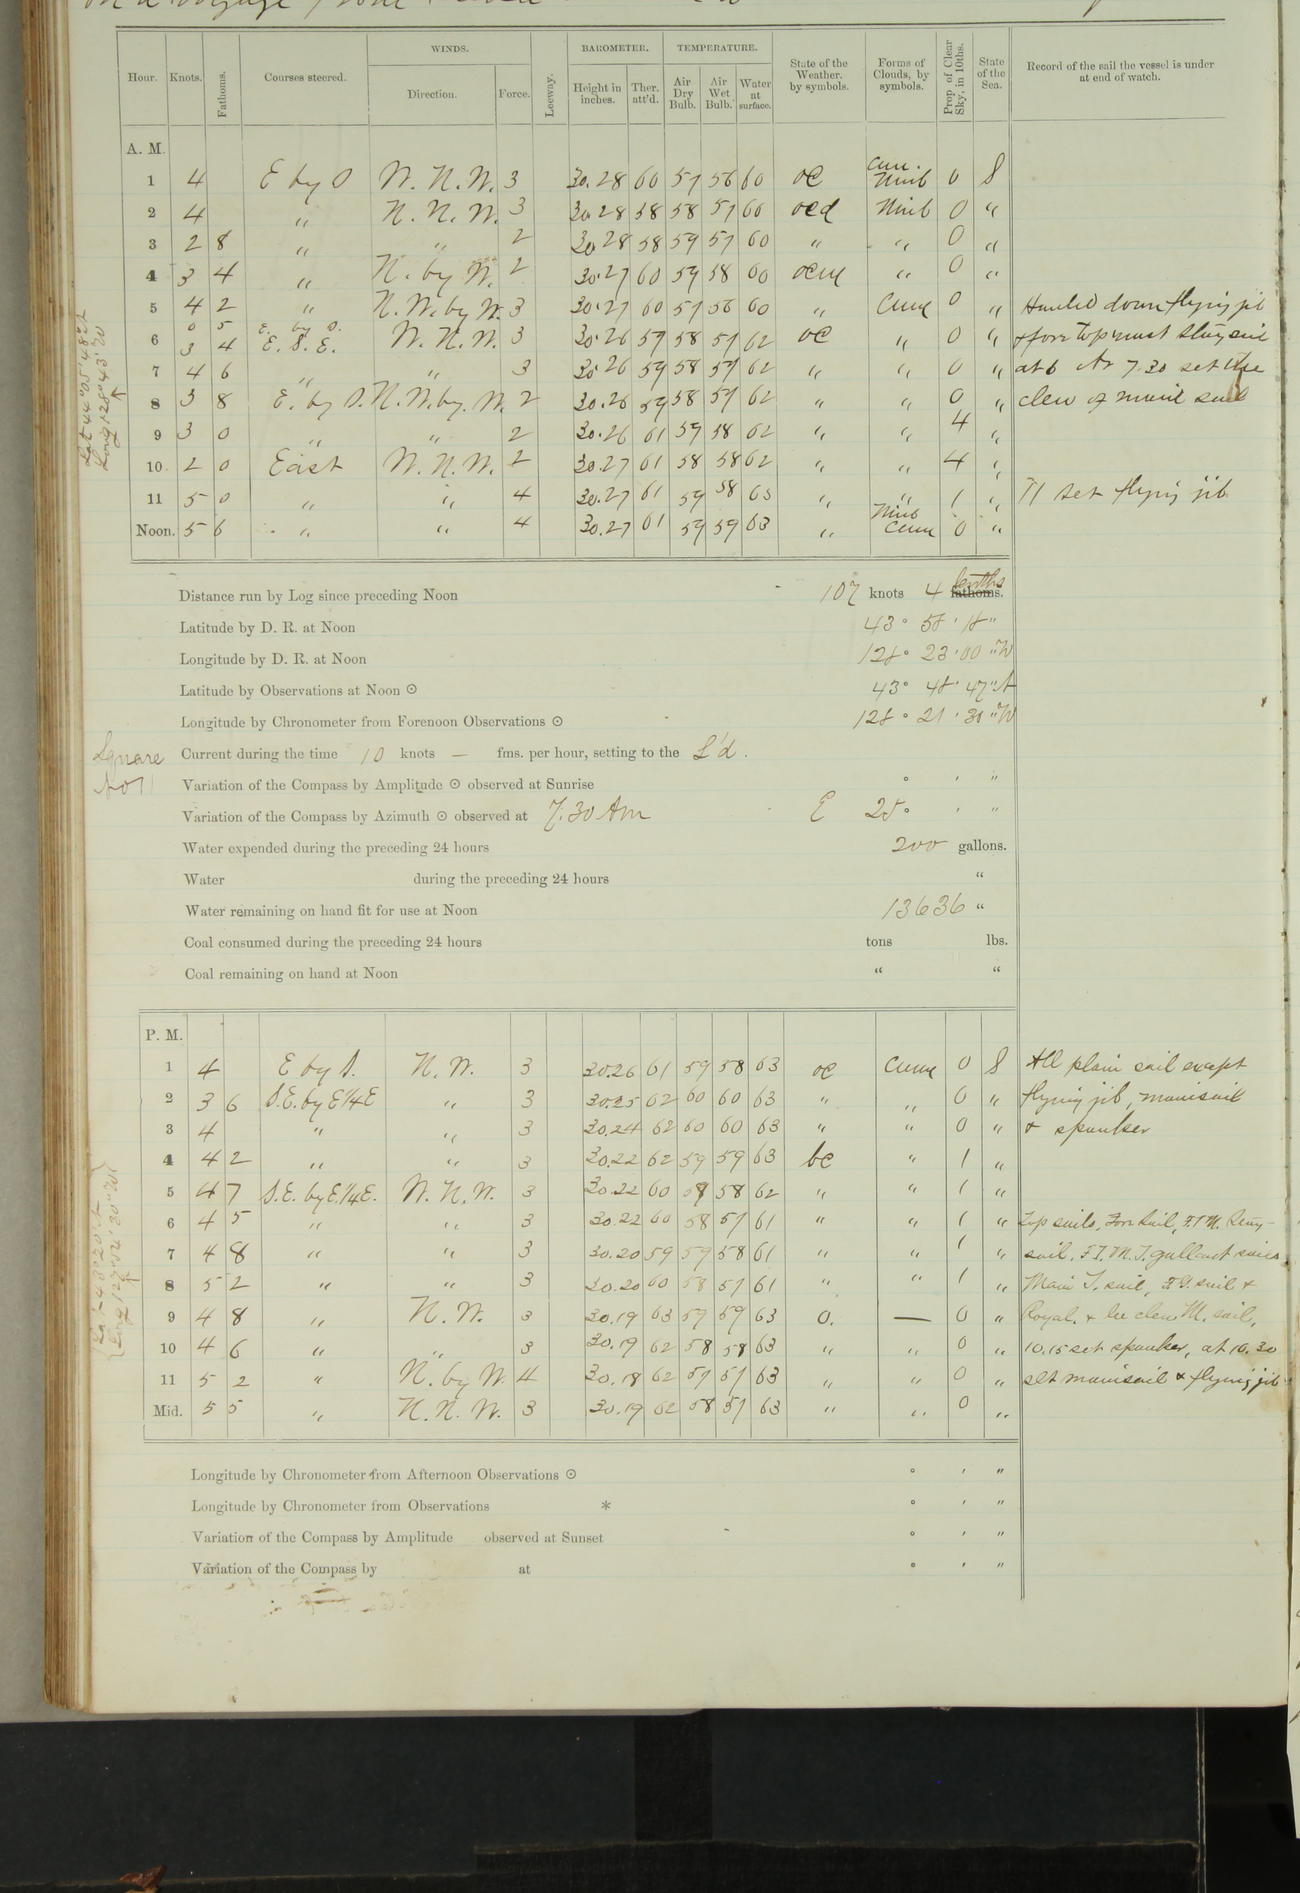 Hour. Knots. Fathoms. Courses steered. WINDS. Direction. Force. Leeway. BAROMETER. Height in inches. Ther. att'd. TEMPERATURE. Air Dry Bulb. Air Wet Bulb. Water at surface. State of the Weather. by symbols. Forms of Clouds, by symbols. Prop. of Clear Sky, in 10ths. State of the Sea. Record of the sail the vessel is under at end of watch.
A. M.
1 4 E by S W. N. W. 3 30.28 60 57 56 60 oc Cum. Nimb 0 S
2 4 " N. N. W. 3 30.28 58 58 57 60 ocd Nimb 0 "
3 2 8 " " 2 30.28 58 59 57 60 " " 0 "
4 3 4 " N. by W. 2 30.27 60 59 58 60 ocm " 0 "
5 4 2 " N. W. by W. 3 30.27 60 57 56 60 " Cum 0 " Hauled down flying jib
6 0 5 E. by S.
3 4 E. S. E. W. N. W. 3 30.26 59 58 57 62 oc " 0 " & fore topmast stay sail
7 4 6 " " 3 30.26 59 58 57 62 " " 0 " at 6 At 7.30 set the
8 3 8 E. by S. N. W. by. W. 2 30.26 59 58 57 62 " " 0 " clew of main sail
9 3 0 " " 2 30.26 61 59 58 62 " " 4 "
10 2 0 East W. N. W. 2 30.27 61 58 58 62 " " 4 "
11 5 0 " " 4 30.27 61 59 58 63 " " 1 " 11 set flying jib
Noon. 5 6 " " 4 30.27 61 59 59 63 " Nimb Cum 0 "
Distance run by Log since preceding Noon 107 knots 4 tenths fathoms.
Latitude by D. R. at Noon 43° 58' 18"
Longitude by D. R. at Noon 128° 23' 00" W
Latitude by Observations at Noon ⊙ 43° 48' 47" N
Longitude by Chronometer from Forenoon Observations ⊙ 128° 21' 30" W
Current during the time 10 knots — fms. per hour, setting to the S'd.
Variation of the Compass by Amplitude ⊙ observed at Sunrise ° ' "
Variation of the Compass by Azimuth ⊙ observed at 7.30 Am E ° ' "
Water expended during the preceding 24 hours 200 gallons.
Water during the preceding 24 hours "
Water remaining on hand fit for use at Noon 13636 "
Coal consumed during the preceding 24 hours tons lbs.
Coal remaining on hand at Noon " "
P. M.
1 4 E by S. N. W. 3 30.26 61 59 58 63 oc Cum 0 S All plain sail except
2 3 6 S. E. by E ¼ E " 3 30.25 62 60 60 63 " " 0 " flying jib, mainsail
3 4 " " 3 30.24 62 60 60 63 " " 0 " & spanker
4 4 2 " " 3 30.22 62 59 59 63 bc " 1 "
5 4 7 S. E. by E. ¼ E. W. N. W. 3 30.22 60 58 62 " " 1 "
6 4 5 " " 3 30.22 60 58 57 61 " " 1 " Top sails, Fore sail, F. T. M. Stay-
7 4 8 " " 3 30.20 59 59 58 61 " " 1 " sail, F. T. M. T. gallant sails
8 5 2 " " 3 30.20 60 58 57 61 " " 1 " Main T. sail, sail &
9 4 8 " N. W. 3 30.19 63 59 59 63 O. — 0 " Royal, & lee clew M. sail,
10 4 6 " " 3 30.19 62 58 58 63 " " 0 " 10.15 set spanker, at 10.30
11 5 2 " N. by W 4 30.18 62 57 57 63 " " 0 " set mainsail & flying jib
Mid. 5 5 " N. N. W. 3 30.19 62 58 57 63 " " 0 "
Longitude by Chronometer from Afternoon Observations ⊙ ° ' "
Longitude by Chronometer from Observations * ° ' "
Variation of the Compass by Amplitude observed at Sunset ° ' "
Variation of the Compass by at ° ' "
Lat 44° 05' 48" N
Long 128° 43' W
Square